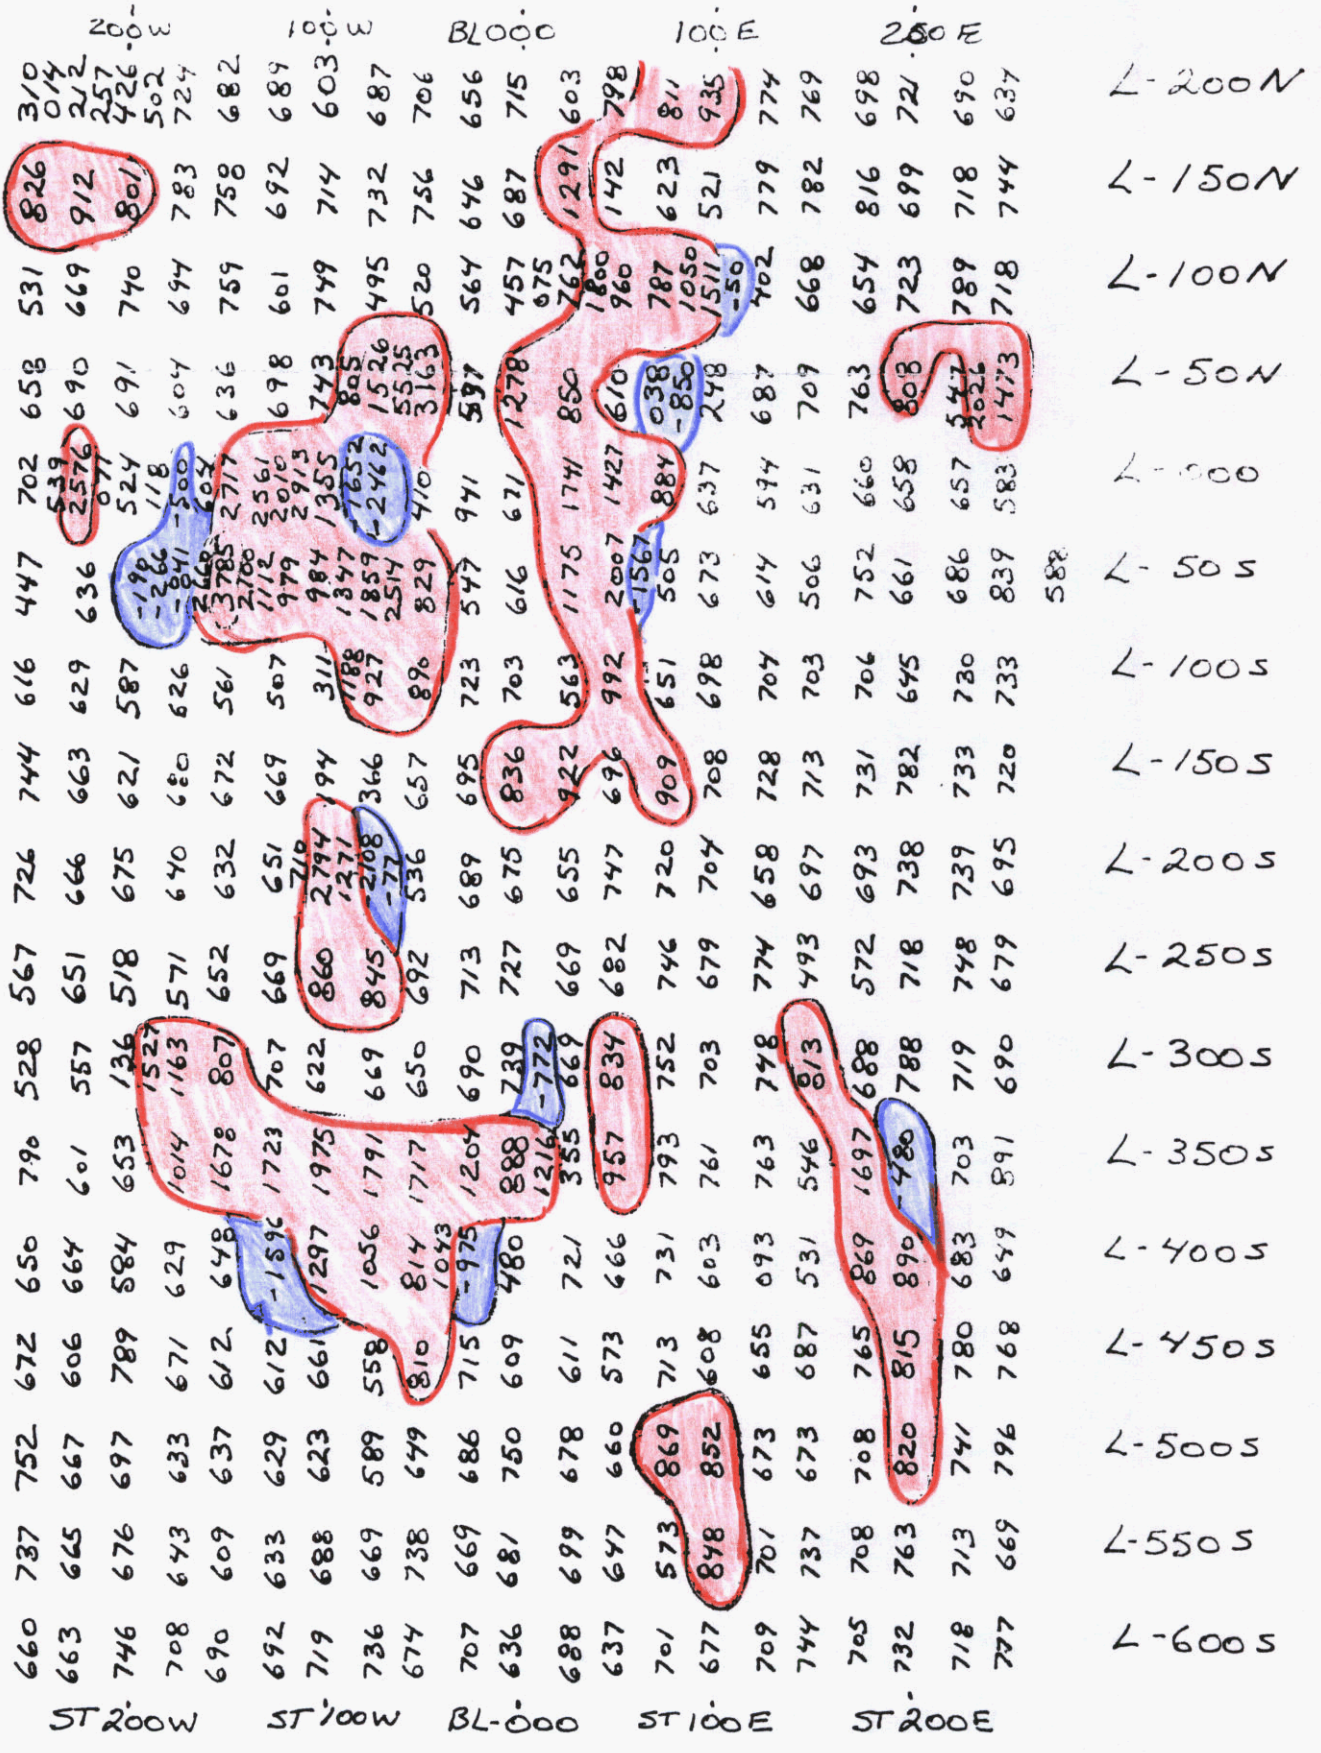 200W 100W BL000 100E 200E
310 014 212 257 426 502 724 682 689 603 687 706 656 715 603 798 811 935 774 769 698 721 690 634 L-200N
826 912 801 783 758 692 714 732 756 646 687 1291 142 623 521 779 782 816 699 718 744 L-150N
531 669 740 694 759 601 749 495 520 564 457 075 762 1800 960 787 1050 1511 -50 402 668 654 723 789 718 L-100N
653 690 691 604 636 698 743 805 1526 5525 3163 597 1278 850 610 038 -850 248 687 709 763 803 547 2026 1473 L-50N
702 539 2576 077 524 118 -500 604 2717 2561 2010 2913 1355 -1652 -2462 410 941 671 1741 1427 884 637 594 631 660 658 657 583 L-000
447 636 -190 -266 -041 3785 2700 1112 979 984 1347 1859 2514 829 547 616 1175 2007 -1567 505 673 614 506 752 661 686 839 588 L-50S
616 629 587 626 561 507 311 1188 927 890 723 703 563 992 651 698 704 703 706 645 730 733 L-100S
744 663 621 680 672 669 194 366 657 695 836 922 696 909 708 728 713 731 782 733 720 L-150S
726 666 675 640 632 651 710 2794 1271 -2108 -77 536 689 675 655 747 720 704 658 697 693 738 739 695 L-200S
567 651 518 571 652 669 860 845 692 713 727 669 682 746 679 774 493 572 718 748 679 L-250S
528 557 136 1527 1163 807 707 622 669 650 690 739 -772 669 834 752 703 748 813 688 788 719 690 L-300S
790 601 653 1014 1678 1723 1975 1791 1717 1204 888 1216 355 957 793 761 763 546 1697 -480 703 891 L-350S
650 664 584 629 648 -1596 1297 1056 814 1043 -975 480 721 666 731 603 093 531 869 890 683 649 L-400S
672 606 789 671 612 612 661 558 810 715 609 611 573 713 608 655 687 765 815 780 768 L-450S
752 667 697 633 637 629 623 589 649 686 750 678 660 869 852 673 673 708 820 741 796 L-500S
737 665 676 643 609 633 688 669 738 669 681 699 647 573 848 701 737 708 763 713 669 L-550S
660 663 746 708 690 692 719 736 674 707 636 688 637 701 677 709 744 705 732 718 777 L-600S
ST 200W ST 100W BL-000 ST 100E ST 200E